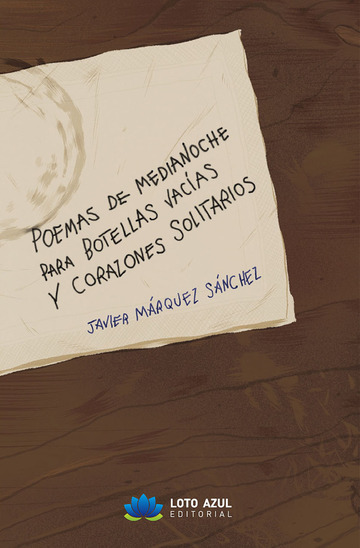 POEMAS DE MEDIANOCHE
PARA BOTELLAS VACÍAS
Y CORAZONES SOLITARIOS
JAVIER MÁRQUEZ SÁNCHEZ
LOTO AZUL
EDITORIAL